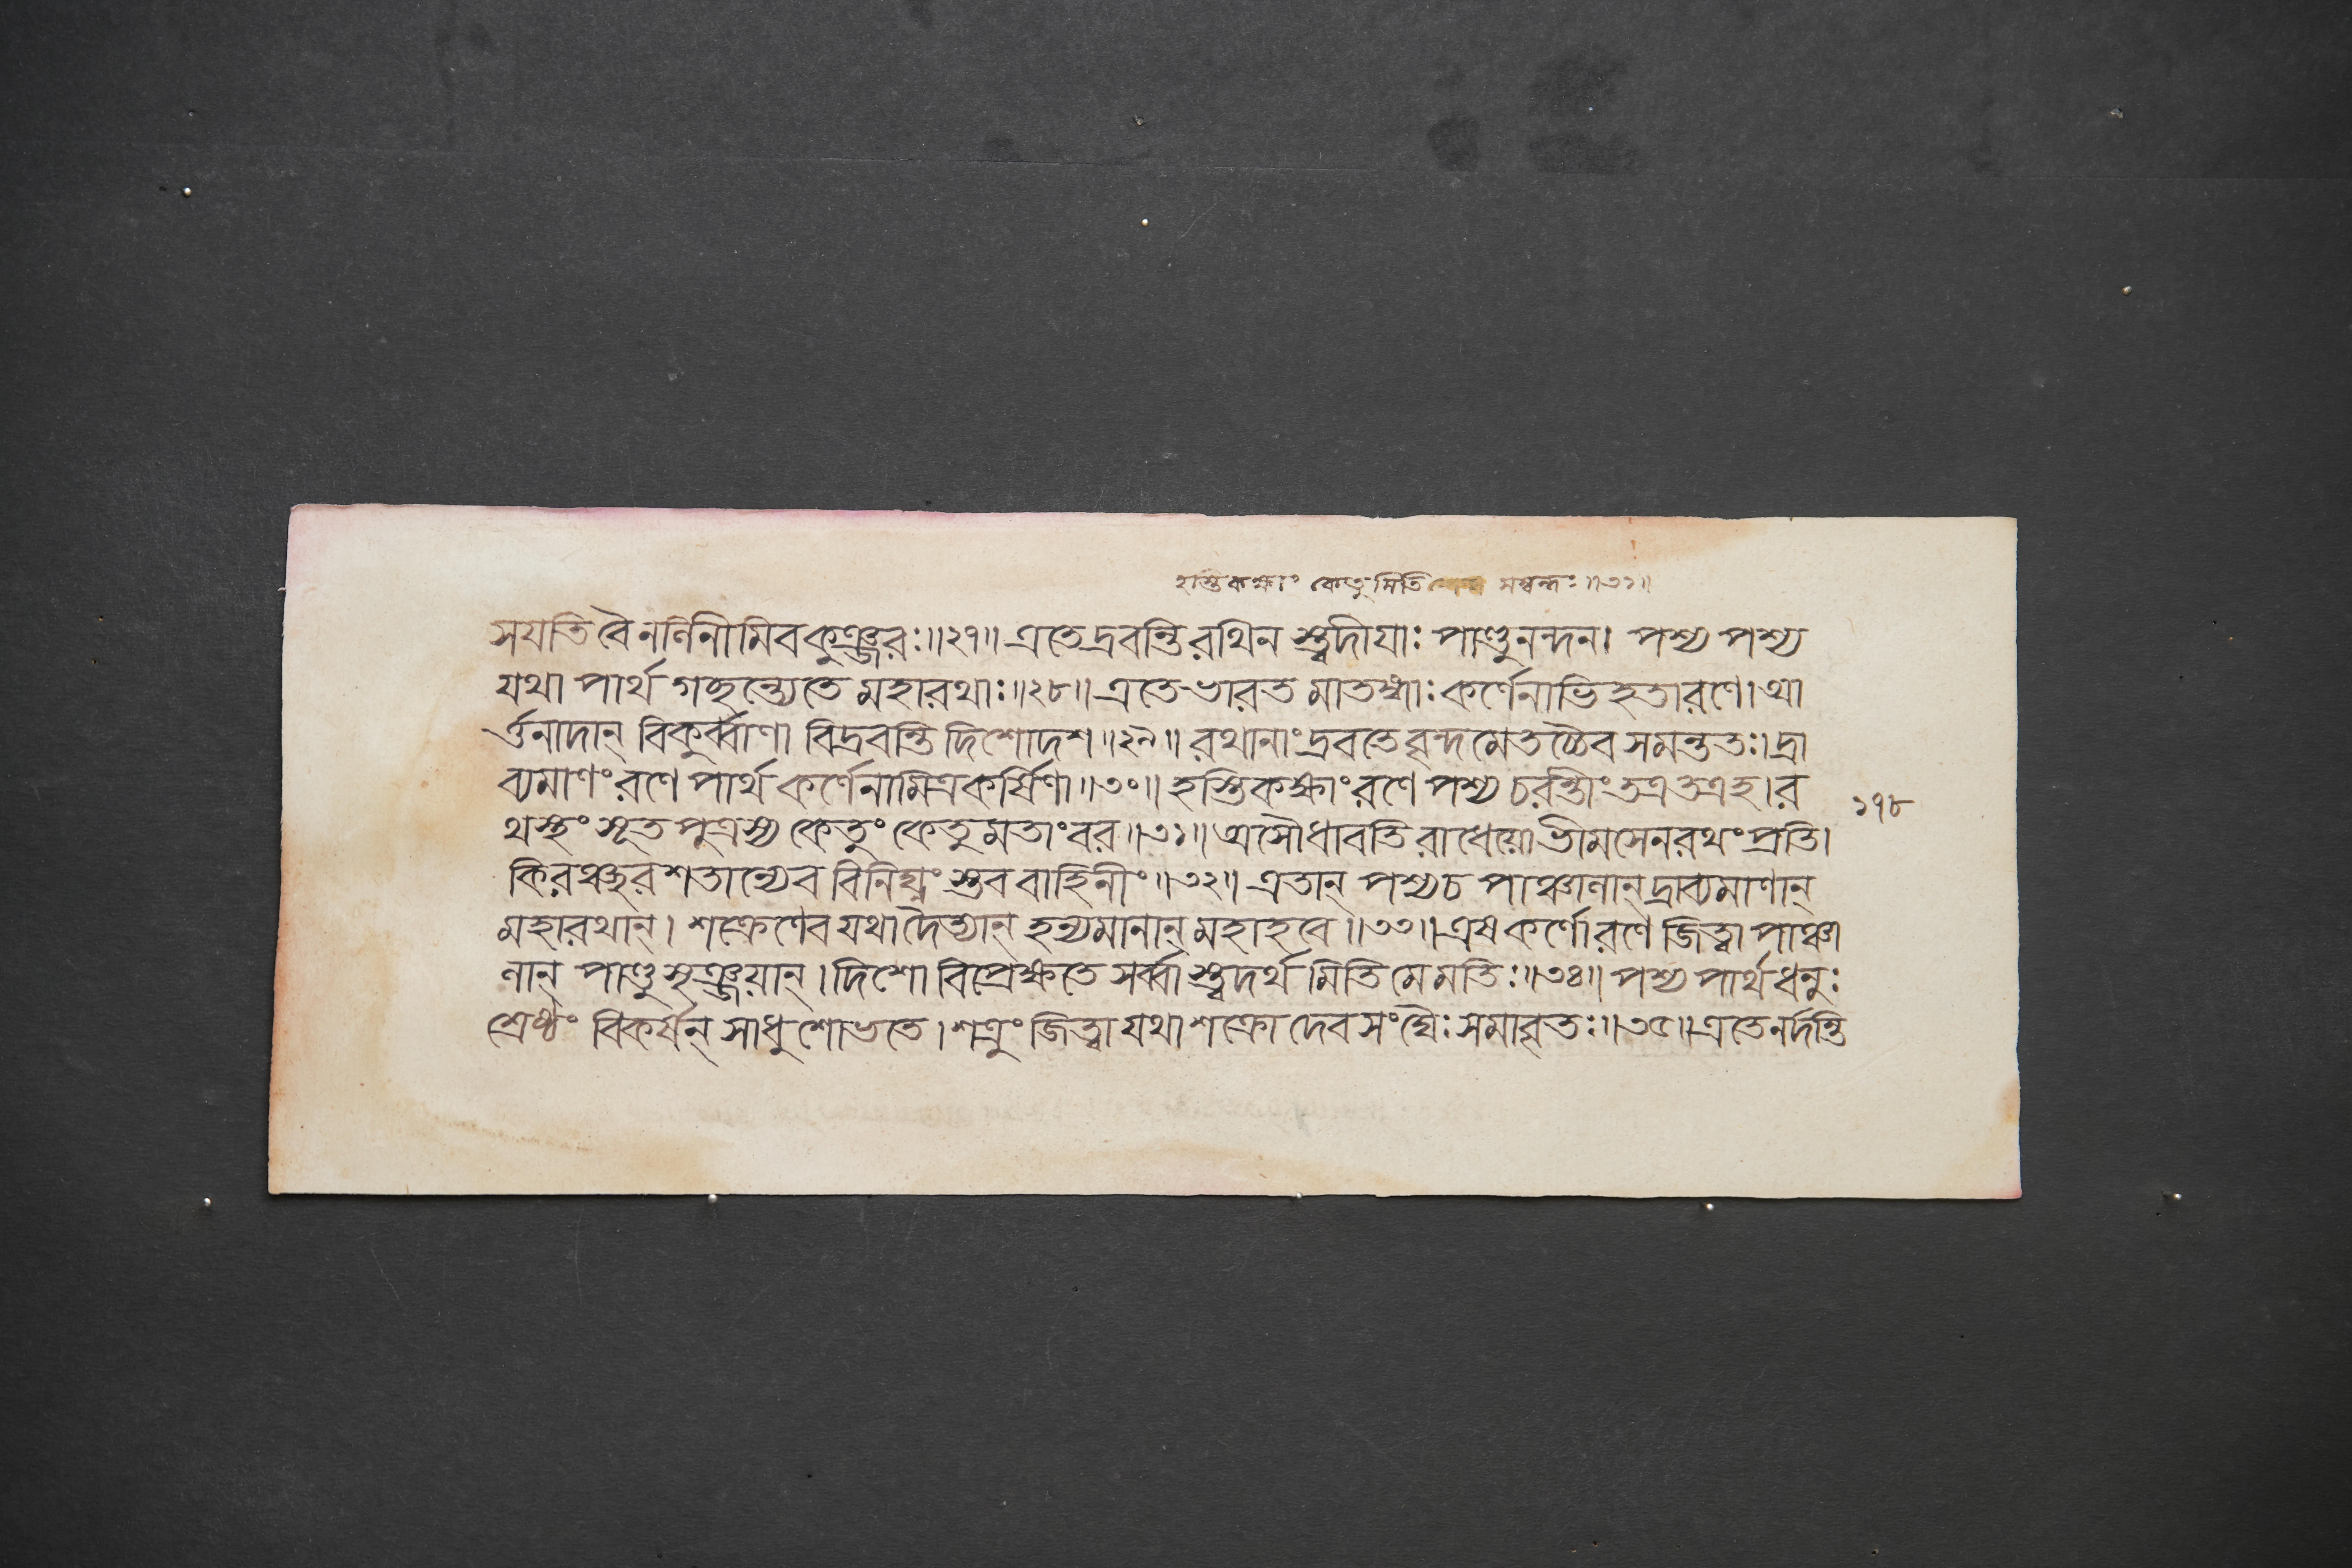 হস্তিকক্ষ্যাং কেতুমিতি সম্বন্ধঃ॥৩১॥
সযতি বৈ নলিনীমিব কুঞ্জরঃ॥২৭॥ এতে দ্রবন্তি রথিন স্ত্বদীযাঃ পাণ্ডুনন্দন। পশ্য পশ্য
যথা পার্থ গচ্ছন্ত্যেতে মহারথাঃ॥২৮॥ এতে ভারত মাতঙ্গাঃ কর্ণেনাভিহতা রণে। আ
র্ত্তনাদান্ বিকুর্ব্বাণা বিদ্রবন্তি দিশোদশ॥২৯॥ রথানাং দ্রবতে বৃন্দমেতচ্চৈব সমন্ততঃ। দ্রা
ব্যমাণং রণে পার্থ কর্ণেনামিত্রকর্ষিণা॥৩০॥ হস্তিকক্ষ্যাং রণে পশ্য চরন্তীং তত্র তত্র হ। র
১৭৮
থস্থং সূতপুত্রস্য কেতুং কেতুমতাং বর॥৩১॥ অসৌ ধাবতি রাধেয়ো ভীমসেনরথং প্রতি।
কিরঞ্ছরশতান্যেব বিনিঘ্নং স্তব বাহিনীং॥৩২॥ এতান্ পশ্য চ পাঞ্চালান্ দ্রাব্যমাণান্
মহারথান্। শক্রেণেব যথা দৈত্যান্ হন্যমানান্ মহাহবে॥৩৩॥ এষ কর্ণো রণে জিত্বা পাঞ্চা
লান্ পাণ্ডুসৃঞ্জয়ান্। দিশো বিপ্রেক্ষতে সর্ব্বা স্ত্বদর্থমিতি মে মতিঃ॥৩৪॥ পশ্য পার্থ ধনুঃ
শ্রেষ্ঠং বিকর্ষন্ সাধু শোভতে। শত্রুং জিত্বা যথা শক্রো দেবসংঘৈঃ সমাবৃতঃ॥৩৫॥ এতে নর্দন্তি